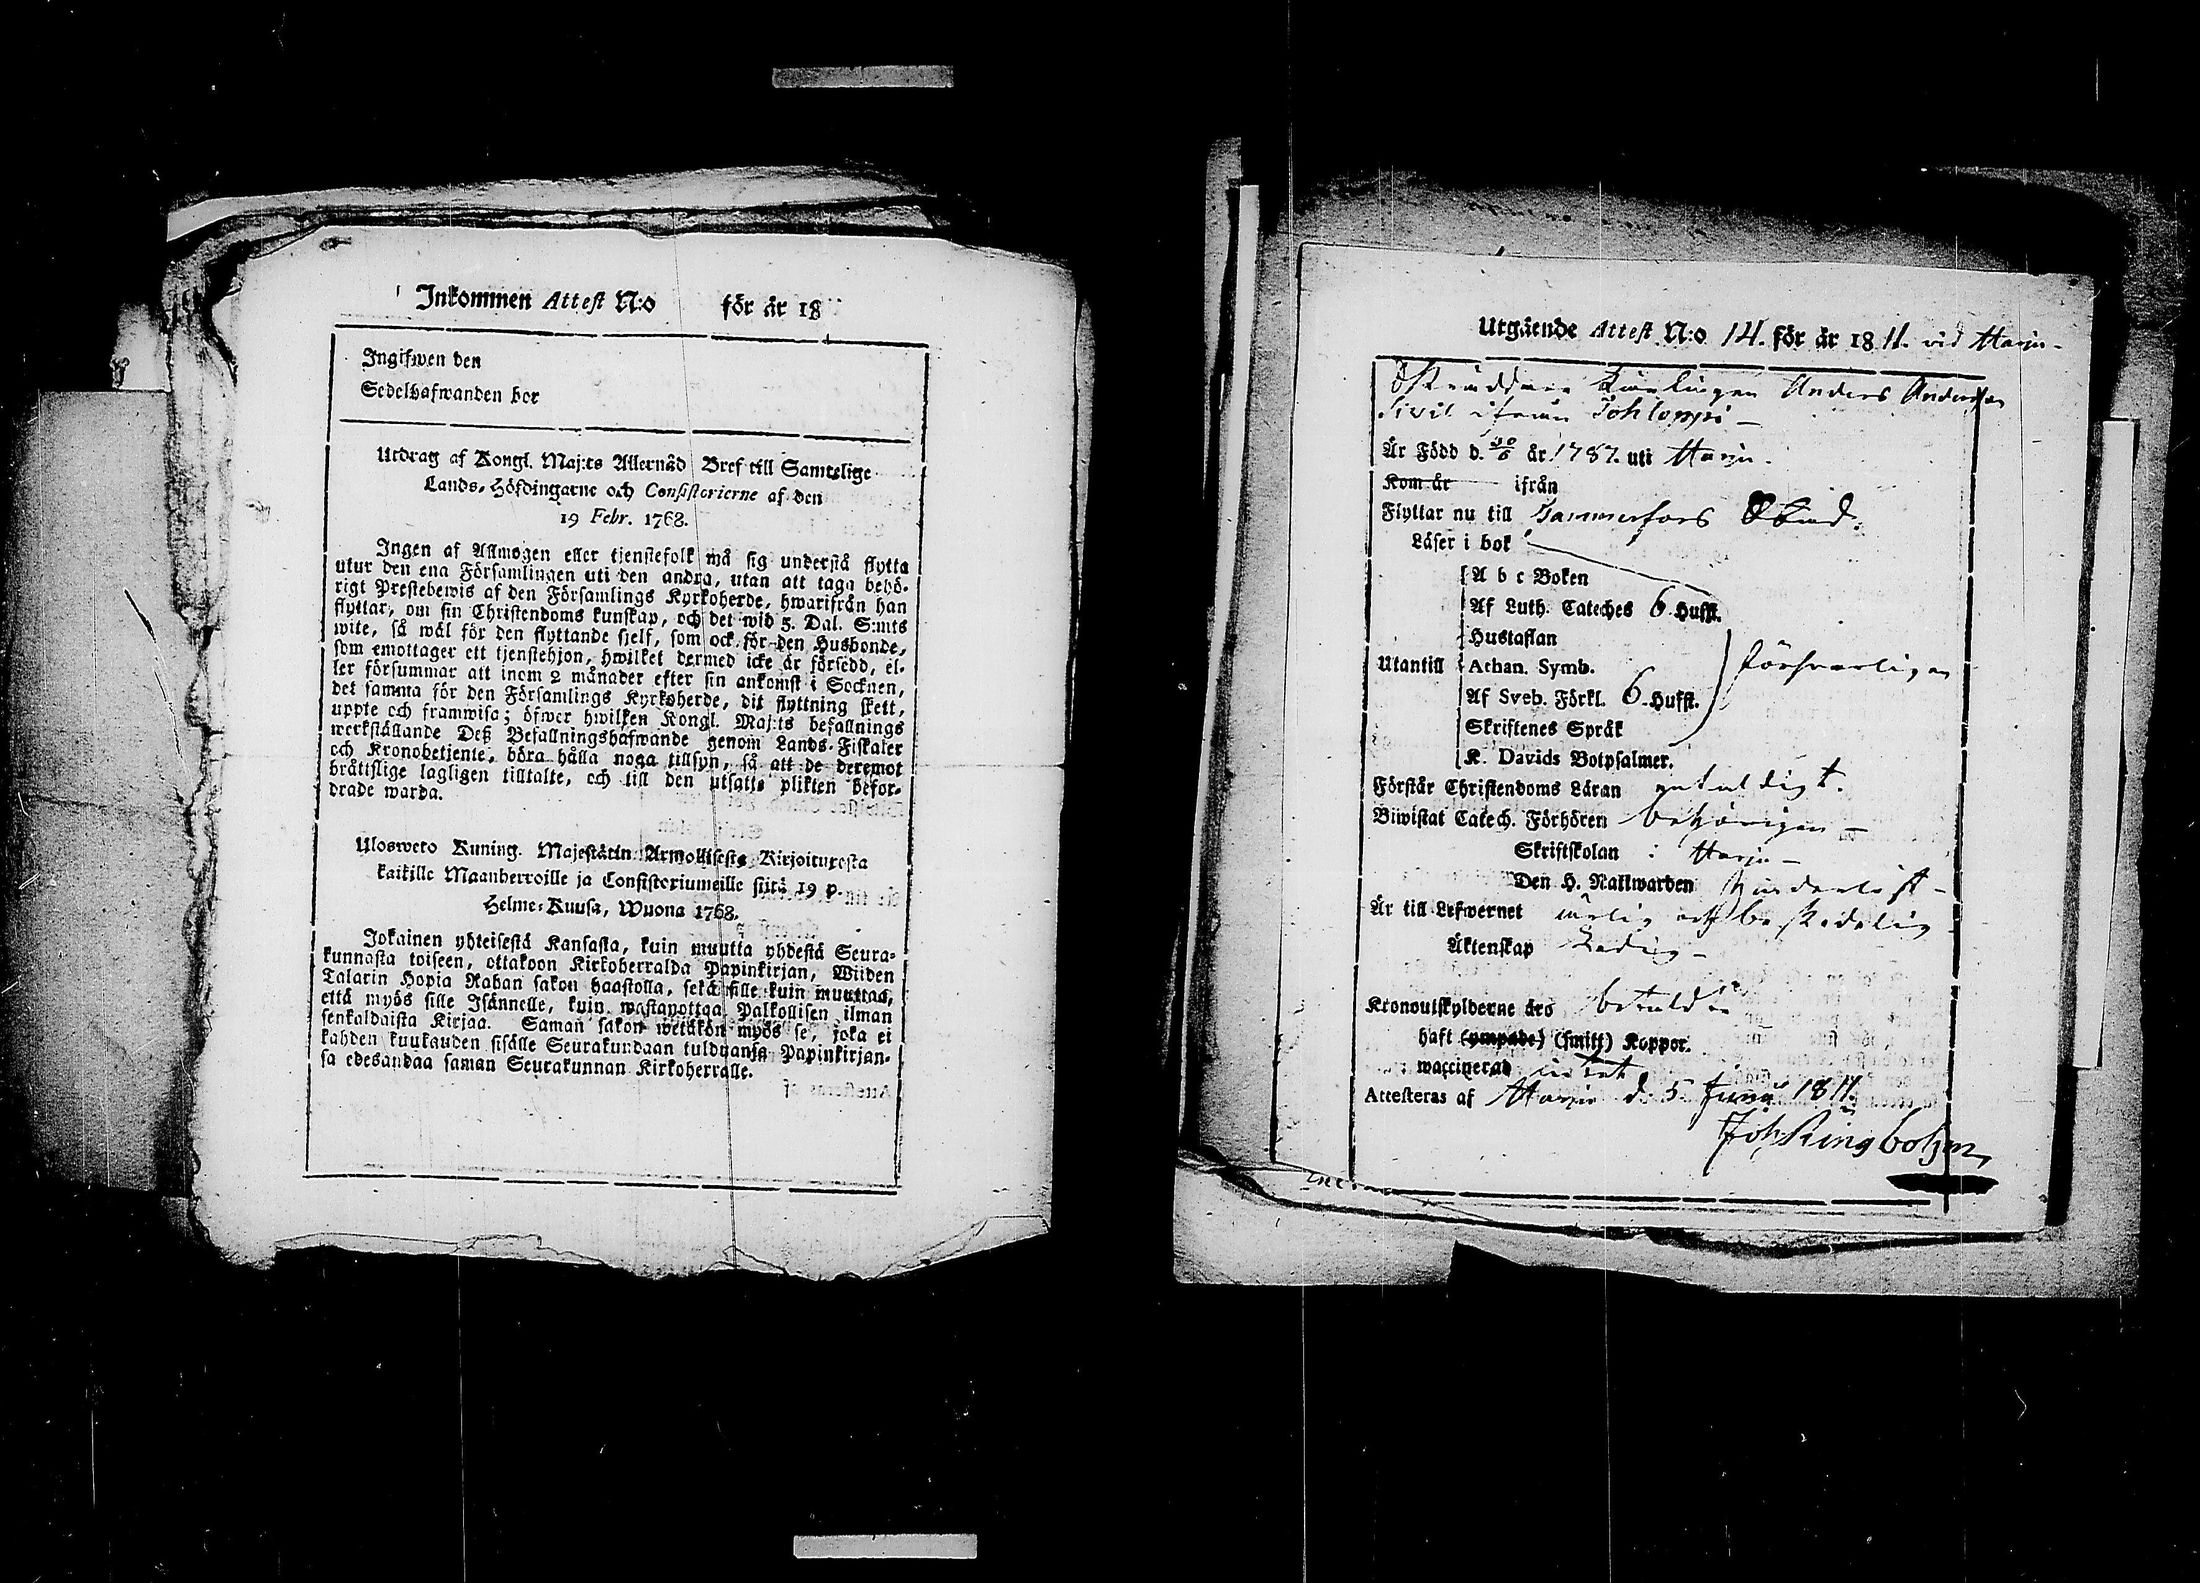 Inkommen Attest N:o för år 18
Ingifwen den
Sedelhafwanden bor
Utdrag af Kongl. Maj:ts Allernåd Bref till Samtelige
Lands-Höfdingarne och Consistorierne af den
19 Febr. 1768.
Ingen af Allmogen eller tjenstefolk må sig understå flytta
utur den ena Församlingen uti den andra, utan att taga behö-
rigt Prestebewis af den Församlings Kyrkoherde, hwarifrån han
flyttar, om sin Christendoms kunskap, och det wid 5. Dal. S:mts
wite, så wäl för den flyttande sjelf, som ock för den Husbonde,
som emottager ett tjenstehjon, hwilket dermed icke är försedd, el-
ler försummar att inom 2 månader efter sin ankomst i Socknen,
det samma för den Församlings Kyrkoherde, dit flyttning skett,
uppte och framwisa; öfwer hwilken Kongl. Maj:ts befallnings
werkställande Deß Befallningshafwande genom Lands-Fiskaler
och Kronobetjente, böra hålla noga tillsyn, så att de deremot
bråttslige lagligen tilltalte, och till den utsatte plikten befor-
drade warda.
Ulosweto Kuning. Majestätin Armollisesta Kirjoituxesta
kaikille Maanherroille ja Consistoriumeille siitä 19 p.
Helme-Kuusa, Wuona 1768.
Jokainen yhteisestä Kansasta, kuin muutta yhdestä Seura-
kunnasta toiseen, ottakoon Kirkoherralda Papinkirjan, Wiiden
Talarin Hopia Rahan sakon haastolla, sekä sille kuin muuttaa,
että myös sille Isännelle, kuin wastapottaa Palkollisen ilman
senkaldaista Kirjaa. Saman sakon wetäkön myös se, joka ei
kahden kuukauden sisälle Seurakundaan tulduansa Papinkirjan-
sa edesandaa saman Seurakunnan Kirkoherralle.
Utgående Attest N:o 14. för år 1811. vid Harju-
Skräddare Lärlingen Anders Andersson
ifrån Tohloppi -
Är Född d. 30/6 år 1787. uti Harju.
Kom år ifrån
Flyttar nu till Tammerfors Stad.
Läser i bok
A b c Boken
Af Luth. Cateches 6. Hufst.
Hustaflan
Utantill Athan. Symb. försvarligen
Af Sveb. Förkl. 6. Hufst.
Skriftenes Språk
K. Davids Botpsalmer.
Förstår Christendoms Läran
Biwistat Catech. Förhören behörigen -
Skriftskolan i Harju -
Den H. Nattwarden
Är till Lefwernet ärlig och beskedelig
Äktenskap Ledig -
Kronoutskylderne äro betalda
haft (ympade) (smitt) Koppor.
waccinerad
Attesteras af Harju d. 5 Junii 1811.
Joh Ringbohm